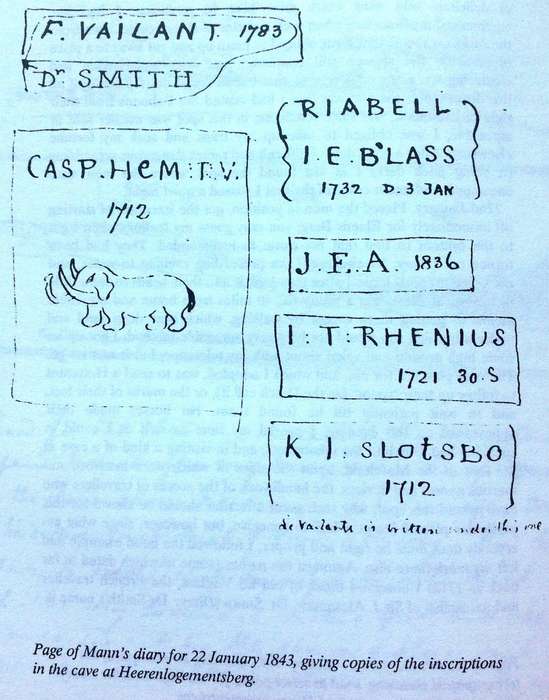 F. VAILANT 1783
Dr SMITH
CASP. HEM : T. V.
1712
RIABELL
I. E. B'LASS
1732 D. 3 JAN
J. F. A. 1836
I : T : RHENIUS
1721 30. S
K I : SLOtSBO
1712
is written under this one
Page of Mann's diary for 22 January 1843, giving copies of the inscriptions
in the cave at Heerenlogementsberg.